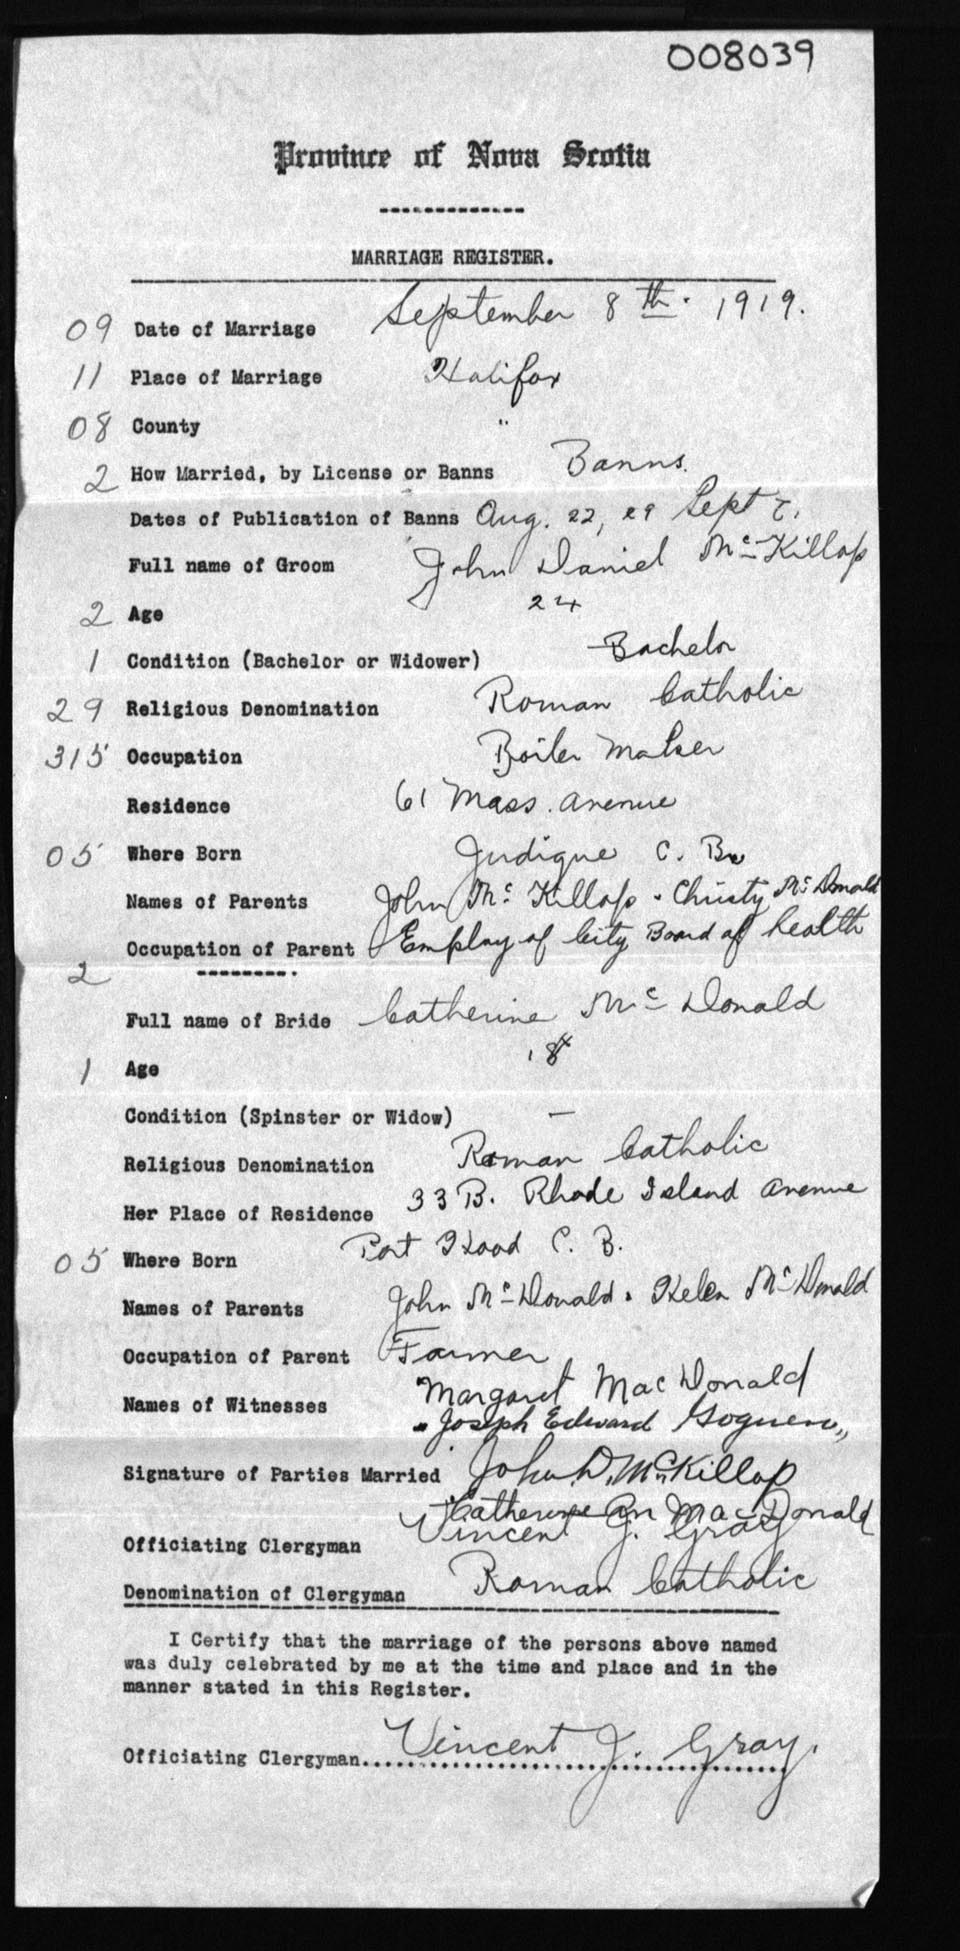 008039
Province of Nova Scotia
MARRIAGE REGISTER.
09 Date of Marriage September 8th. 1919.
11 Place of Marriage Halifax
08 County "
2 How Married, by License or Banns Banns.
Dates of Publication of Banns Aug. 22, 29 Sept 7.
Full name of Groom John Daniel McKillop
2 Age 24
1 Condition (Bachelor or Widower) Bachelor
29 Religious Denomination Roman Catholic
315 Occupation Boiler Maker
Residence 61 Mass. Avenue
05 Where Born Judique C. B.
Names of Parents John McKillop - Christy McDonald
Occupation of Parent Employ of City Board of health
2
Full name of Bride Catherine McDonald
1 Age 18
Condition (Spinster or Widow) —
Religious Denomination Roman Catholic
Her Place of Residence 33 B. Rhode Island Avenue
05 Where Born Port Hood C. B.
Names of Parents John McDonald. Helen McDonald
Occupation of Parent Farmer
Names of Witnesses Margaret MacDonald
Joseph Edward Goguen
Signature of Parties Married John D. McKillop
Catherine Ann MacDonald
Officiating Clergyman Vincent J. Gray
Denomination of Clergyman Roman Catholic
I Certify that the marriage of the persons above named
was duly celebrated by me at the time and place and in the
manner stated in this Register.
Officiating Clergyman.... Vincent J. Gray.